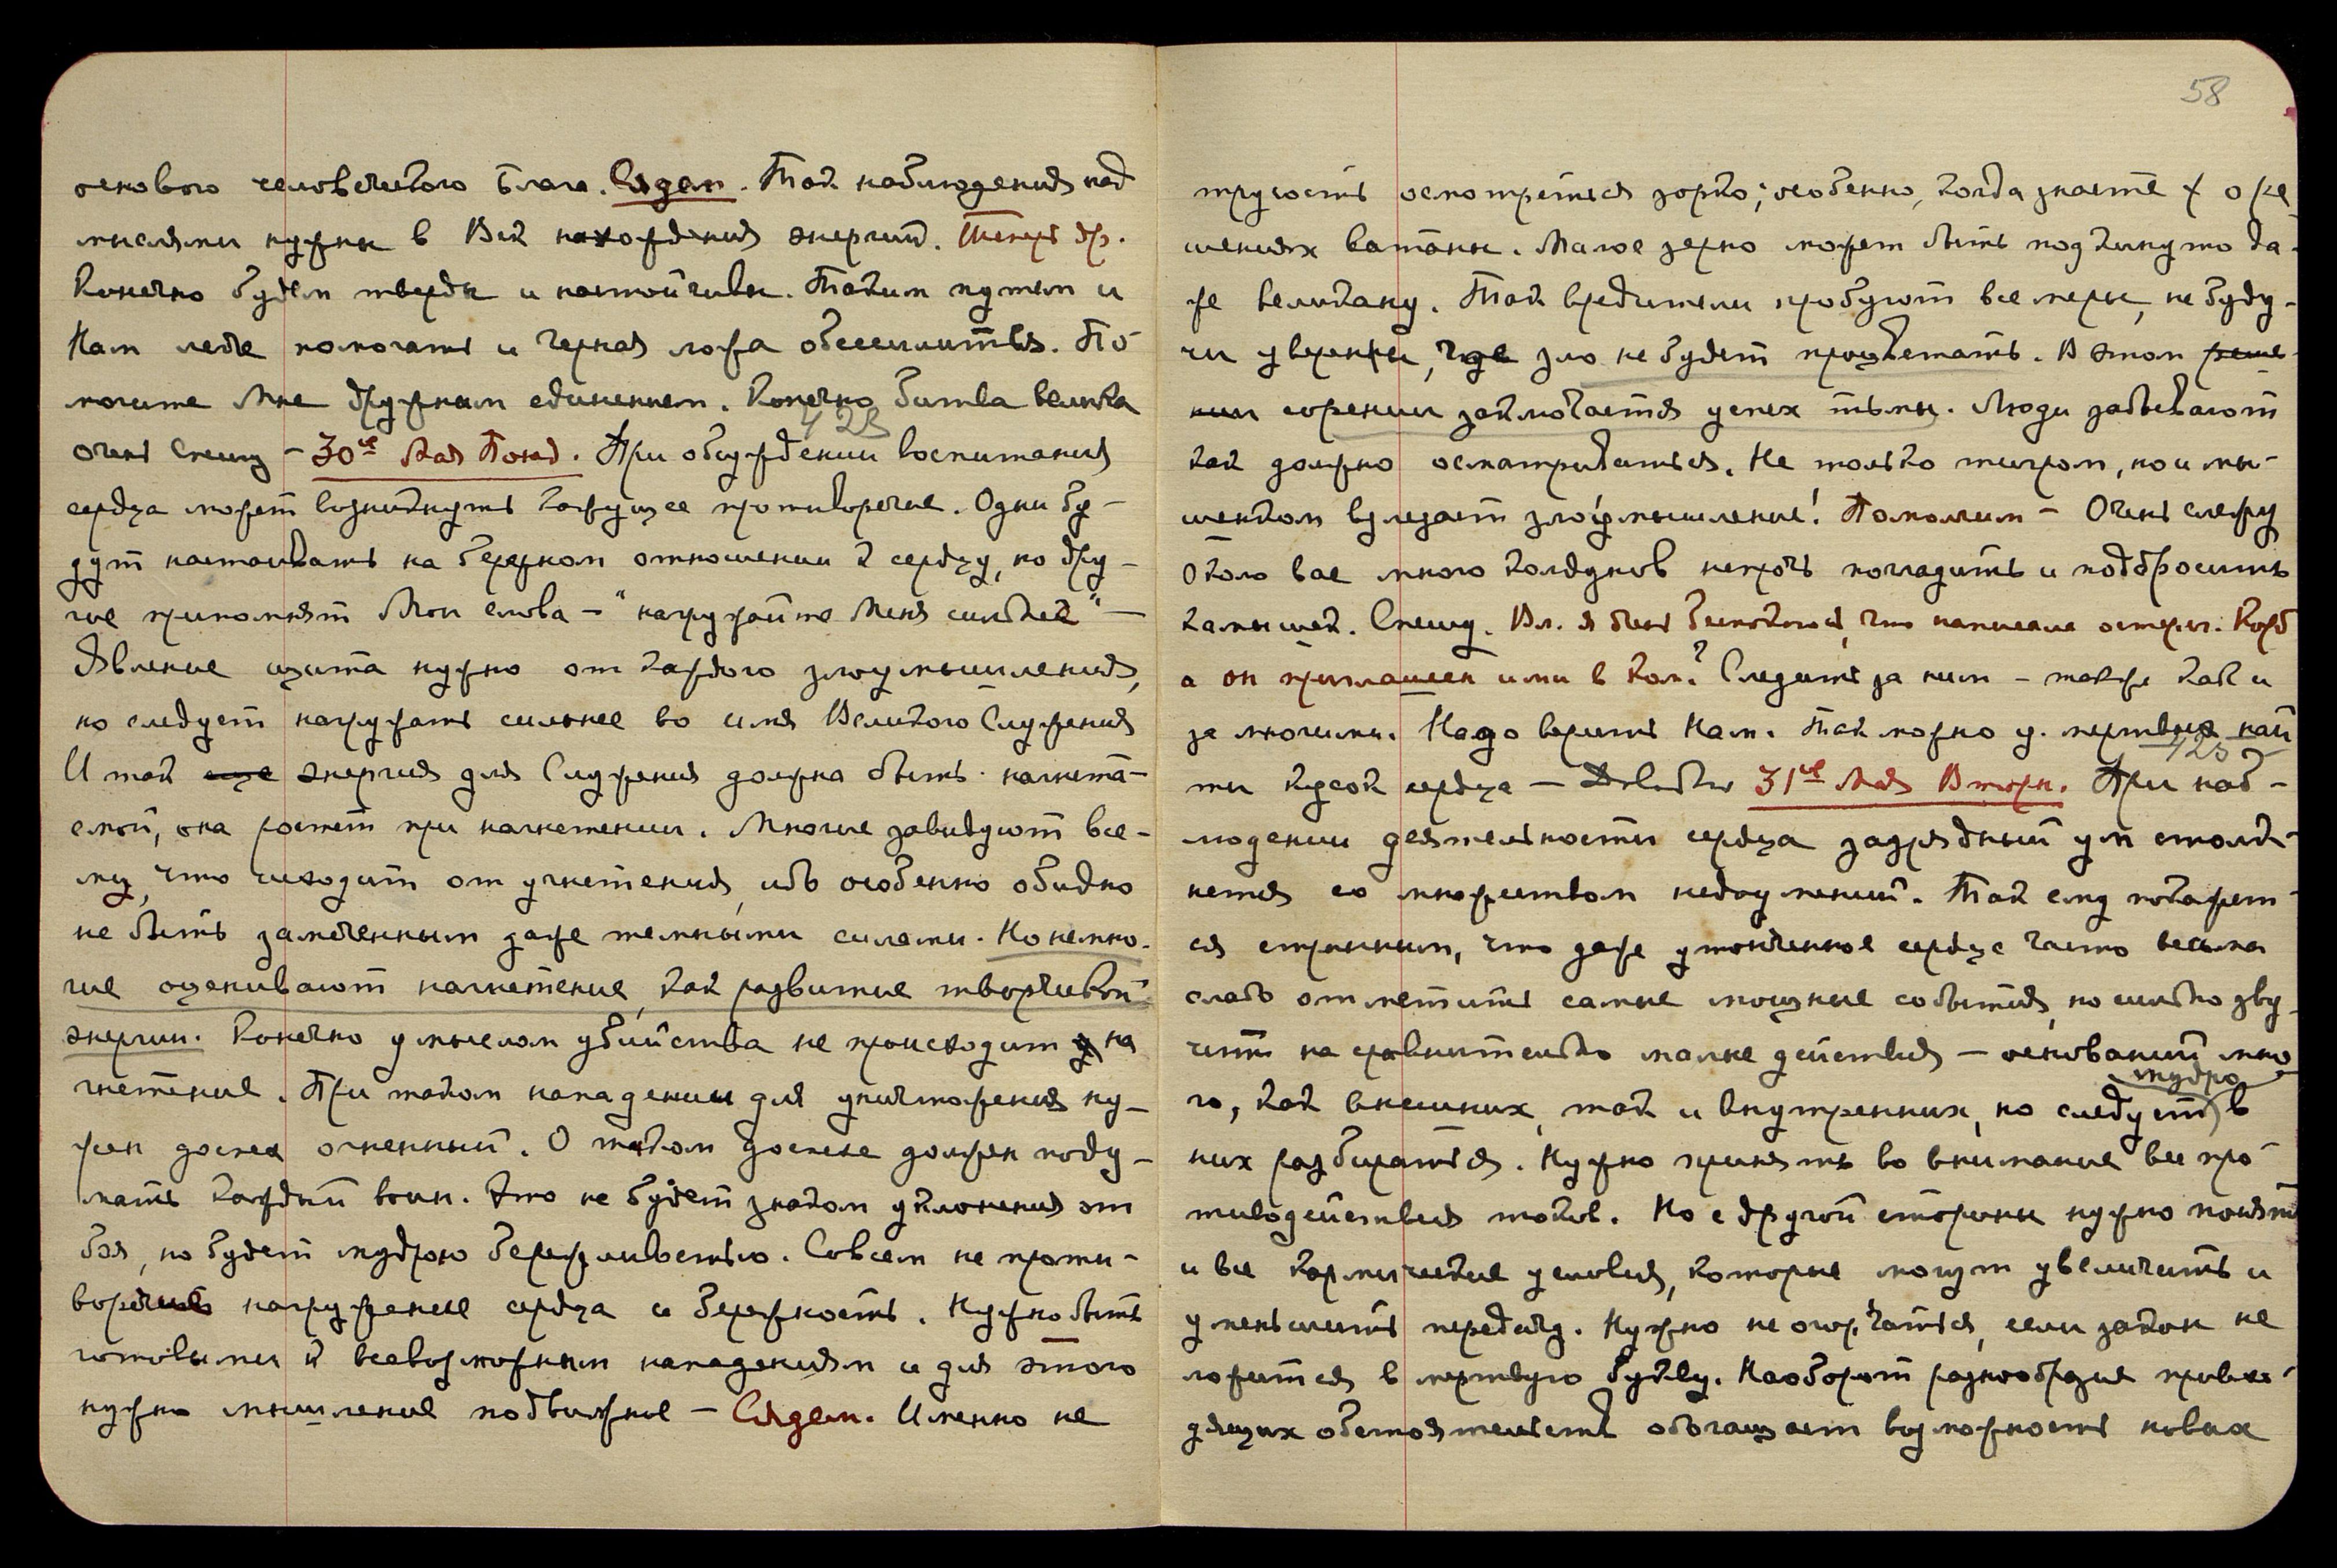 основого человеческого блага. Сядем. Так наблюдения над
мыслями нужны в Век нахождения энергий. Теперь др.
Конечно будем тверды и настойчивы. Таким путем и
Нам легче помогать и черная ложа обессилится. По-
могите Мне дружным единением. Конечно битва велика
очень Спешу – 30ое Мая Понед. При обсуждении воспитания
сердца может возникнуть кажущееся противоречие. Одни бу-
дут настаивать на бережном отношении к сердцу, но дру-
гие припомнят Мои слова – "нагружайте Меня сильнее" –
Явление щита нужно от каждого злоумышления,
но следует нагружать сильнее во имя Великого Служения
И так еще энергия для Служения должна быть нагнета-
емой, она растет при нагнетении. Многие завидуют все-
му, что исходит от угнетения, ибо особенно обидно
не быть замеченным даже темными силами. Но немно-
гие оценивают нагнетение, как развитие творческой
энергии. Конечно умыслом убийства не происходит на
гнетение. При таком нападении для уничтожения ну-
жен доспех огненный. О таком доспехе должен поду-
мать каждый воин. Это не будет знаком уклонения от
боя, но будет мудрою бережливостью. Совсем не проти-
воречие нагружение сердца и бережность. Нужно быть
готовыми к всевозможным нападениям и для этого
нужно мышление подвижное – Сядем. Именно не
58
трусость осмотреться зорко; особенно, когда знаете о ре-
шениях сатаны. Малое зерно может быть подкинуто да-
же великану. Так вредители пробуют все меры, не буду-
чи уверены, где зло не будет процветать. В этом реше-
нии сорении заключается успех тьмы. Люди забывают
как должно осматриваться. Не только тигром, но и мы-
шонком влезает злоумышление! Помолчим – Очень слежу
Около вас много колдунов непрочь погладить и подбросить
камышек. Спешу. Вл. я очень беспокоюсь, что написала
а он приглашен ими в Ком.? Следите за ним – также как и
за многими. Надо верить Нам. Так можно у мертвых най
ти кусок сердца – Довольно 31ое Мая Вторн. При наб-
людении деятельности сердца заурядный ум столк-
нется со множеством недоумений. Так ему покажет-
ся странным, что даже утонченное сердце часто весьма
слабо отметить самые мощные события, но сильно зву
чит на сравнительно малые действия – оснований мно
мудро
го, как внешних, так и внутренних, но следует в
них разбираться. Нужно принять во внимание все про
тиводействия токов. Но с другой стороны нужно понять
и все кармические условия, которые могут увеличить и
уменьшить передачу. Нужно не огорчаться, если закон не
ложится в мертвую букву. Наоборот разнообразие привхо-
дящих обстоятельств обогащает возможность новых